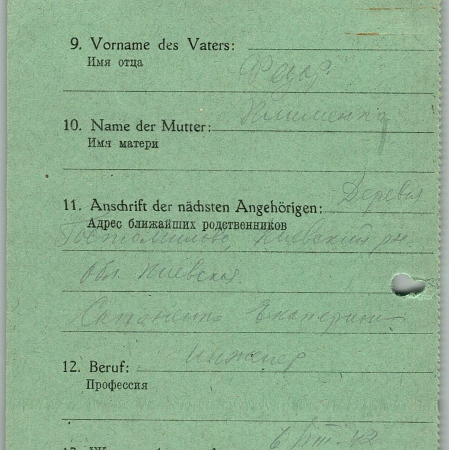 9. Vorname des Vaters:
Имя отца
Федор
10. Name der Mutter:
Имя матери
11. Anschrift der nächsten Angehörigen:
Адрес ближайших родственников
Деревня
Киевский рн.
Обл. Киевская
Екатерина
12. Beruf:
Профессия
инженер